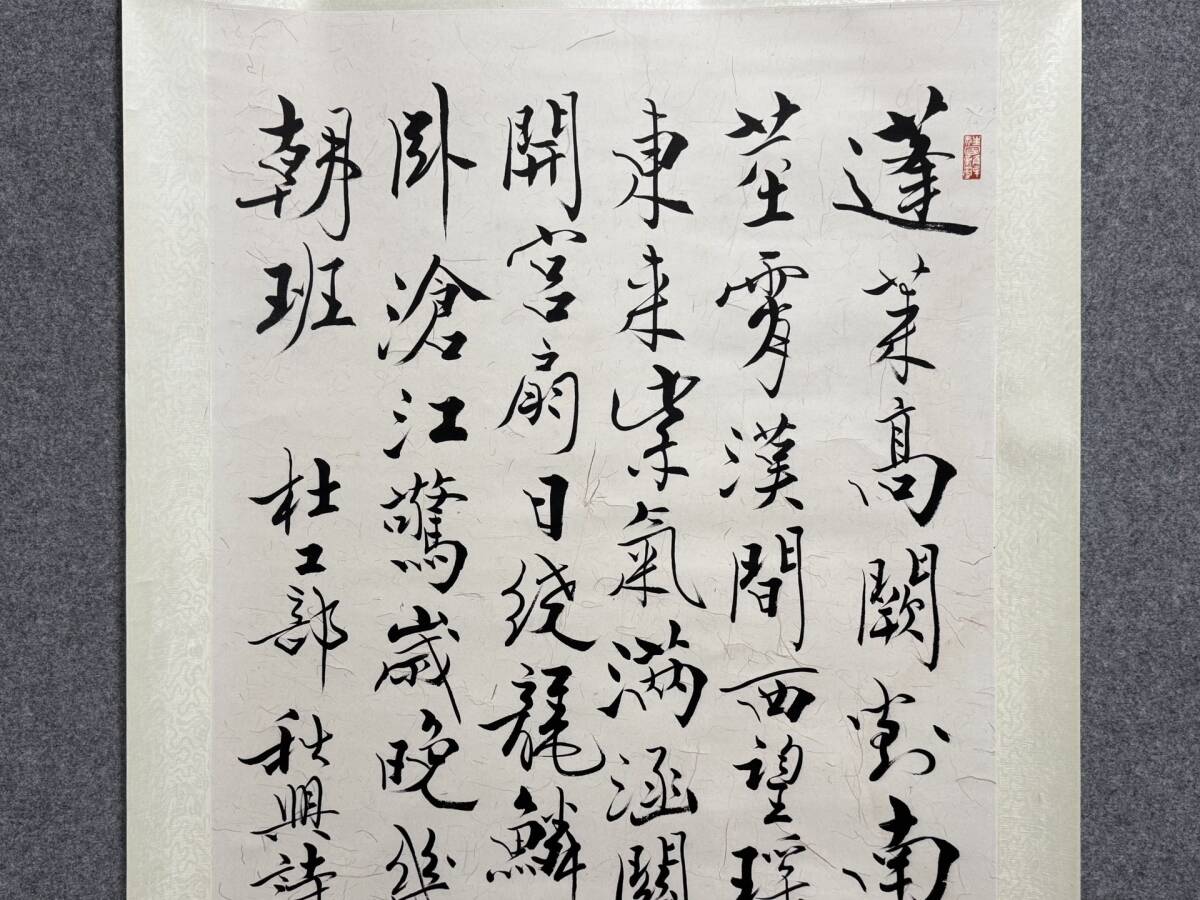 蓬莱高闕對南
莖霄漢間西望瑤
東来紫氣滿涵關
開宮扇日繞龍鱗
卧滄江驚歲晚幾
朝班 杜工部 秋興詩